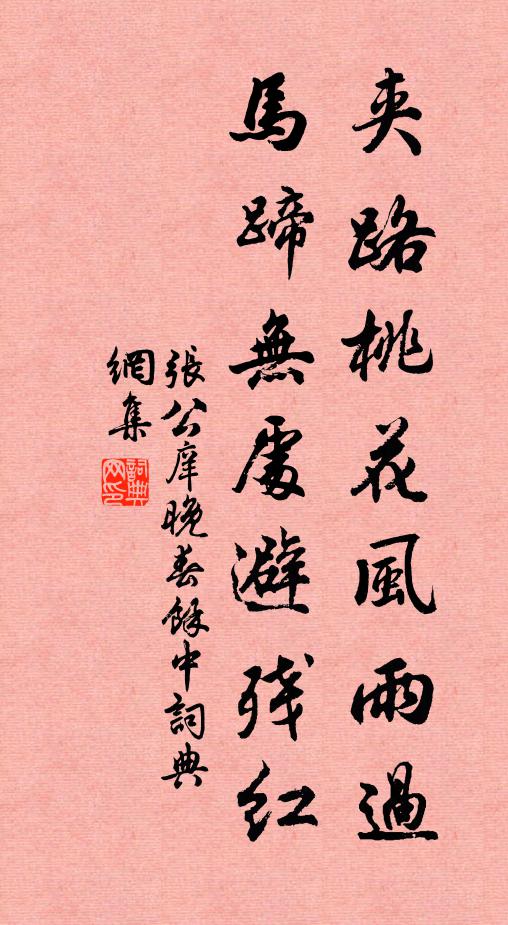 夹路桃花風雨過
馬蹄無處避残紅
張公庠晚春餘中詞典
網集
詞典網印